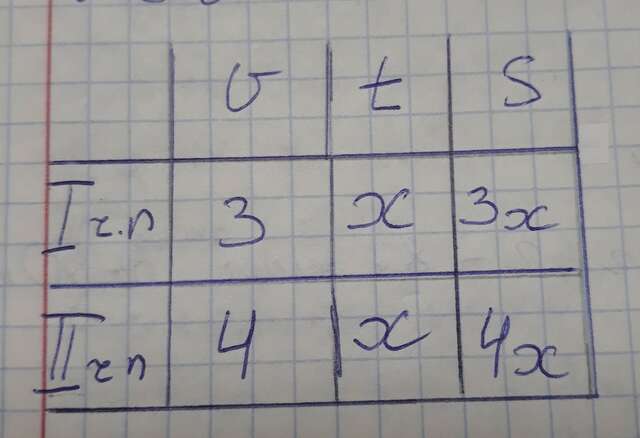 v t S
I г.п 3 x 3x
II г п 4 x 4x